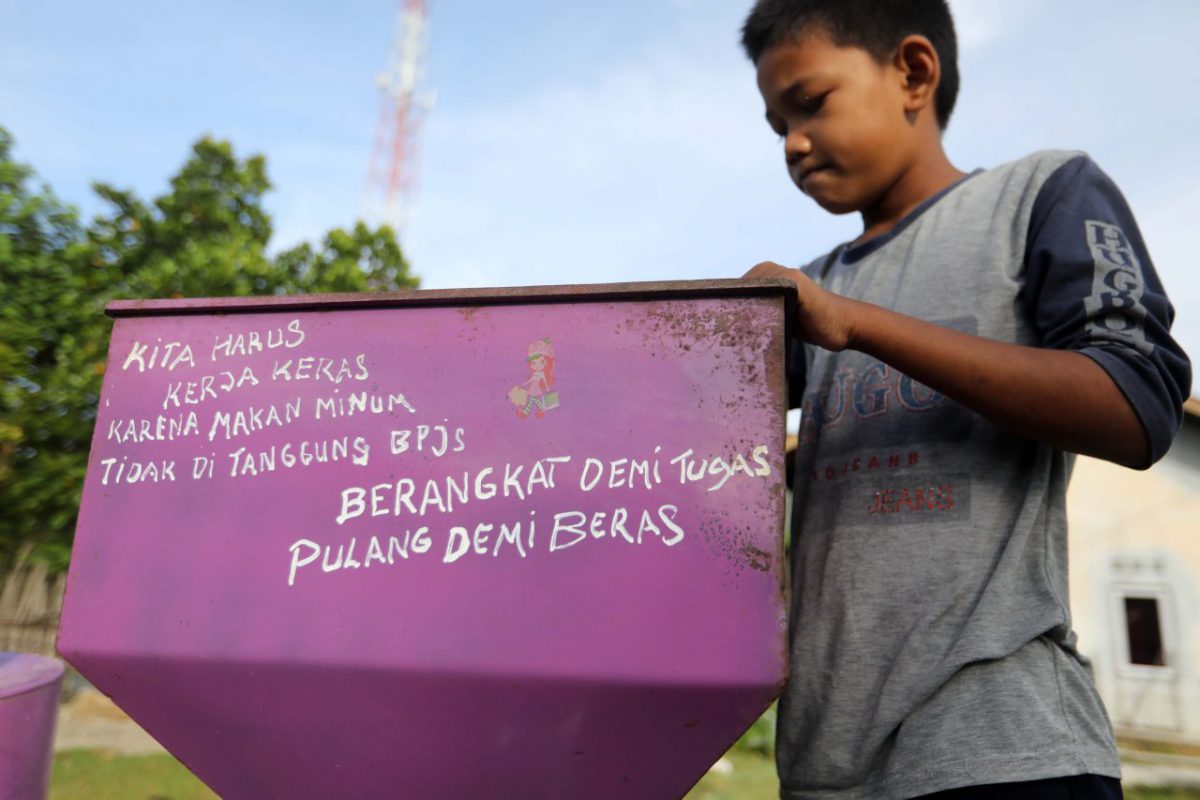 KITA HARUS
KERJA KERAS
KARENA MAKAN MINUM
TIDAK DI TANGGUNG BPJs
BERANGKAT DEMI TUGAS
PULANG DEMI BERAS
HUGO
JEANS